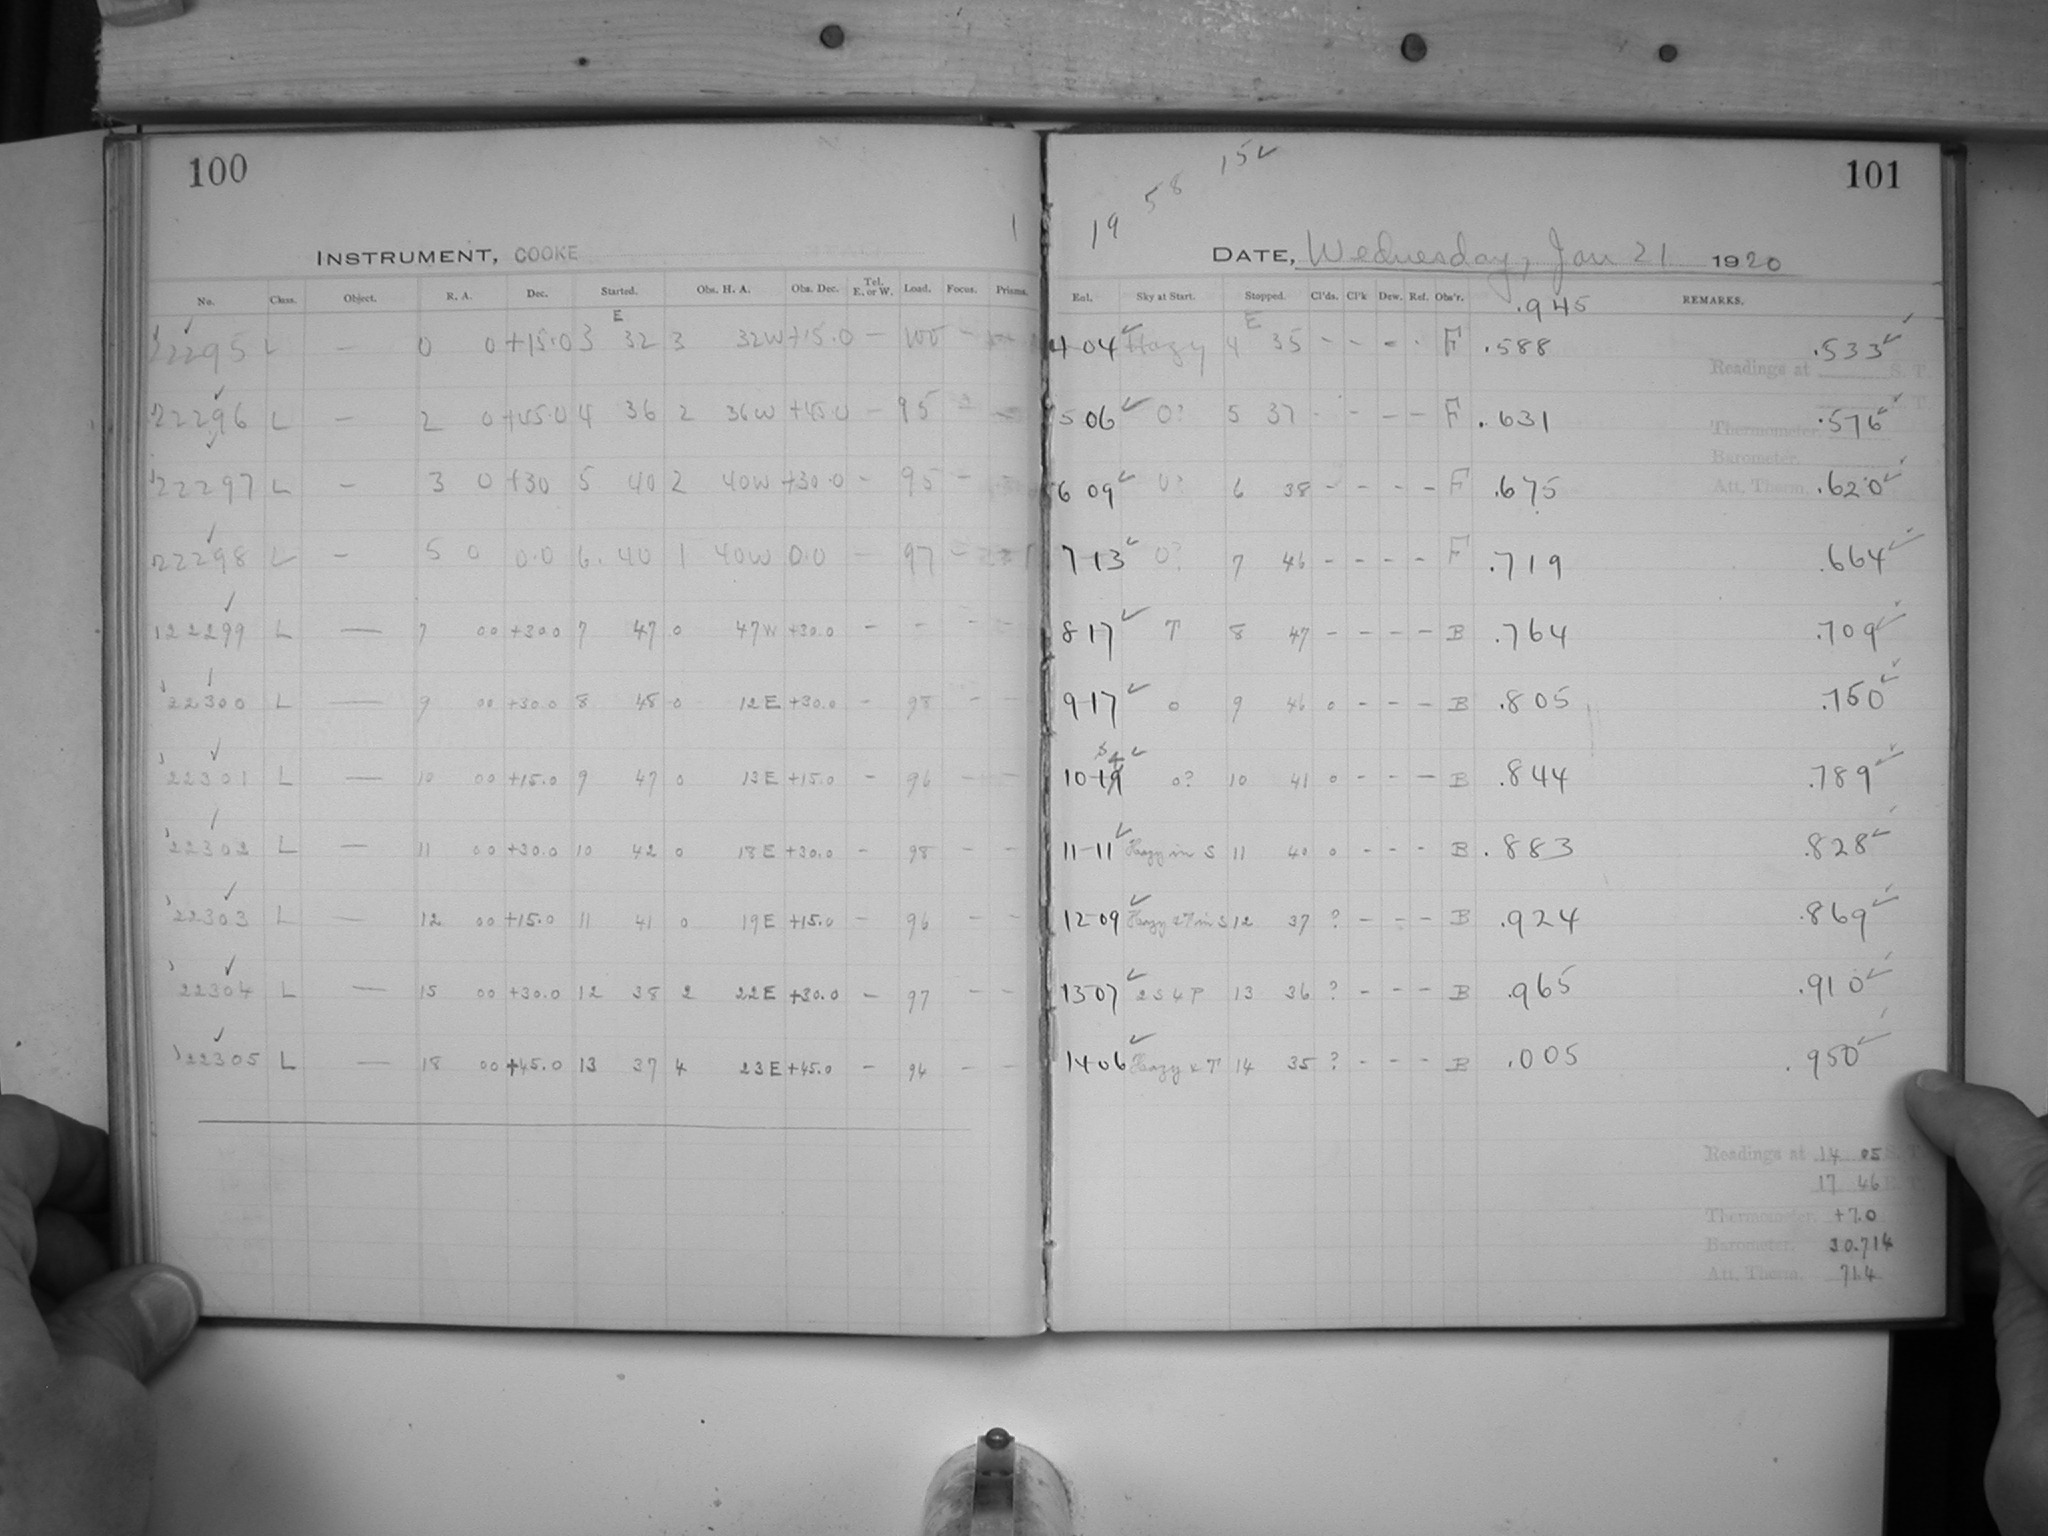 100
1
INSTRUMENT, COOKE
No. Class. Object. R. A. Dec. Started. Obs. H. A. Obs. Dec. Tel. E. or W. Load. Focus. Prisms.
E
22295 L — 0 0 +15.0 3 32 3 32W +15.0 — 100 —
22296 L — 2 0 +45.0 4 36 2 36W +45.0 — 95 —
22297 L — 3 0 +30 5 40 2 40W +30.0 — 95 —
22298 L — 5 0 0.0 6. 40 1 40W 0.0 — 97 —
122299 L — 7 00 +30.0 7 47 0 47W +30.0 — — — —
22300 L — 9 00 +30.0 8 48 0 12E +30.0 — 98 — —
22301 L — 10 00 +15.0 9 47 0 13E +15.0 — 96 — —
22302 L — 11 00 +30.0 10 42 0 18E +30.0 — 98 — —
22303 L — 12 00 +15.0 11 41 0 19E +15.0 — 96 — —
22304 L — 15 00 +30.0 12 38 2 22E +30.0 — 97 — —
22305 L — 18 00 +45.0 13 37 4 23E +45.0 — 94 — —
101
19 58 15 ✓
DATE, Wednesday, Jan 21 1920
Eol. Sky at Start. Stopped. Cl'ds. Cl'k Dew. Ref. Obs'r. REMARKS.
.945
E
4 04 ✓ Hazy 4 35 - - - - F .588 .533 ✓
Readings at S. T.
5 06 ✓ 0? 5 37 - - - - F .631 .576 ✓
Thermometer
Barometer.
6 09 ✓ 0? 6 38 - - - - F .675 .620 ✓
Att. Therm.
7-13 ✓ 0? 7 46 - - - - F .719 .664 ✓
8 17 ✓ T 8 47 - - - - B .764 .709 ✓
9-17 ✓ 0 9 46 0 - - - B .805 .750 ✓
10-19 ✓ 0? 10 41 0 - - - B .844 .789 ✓
11-11 ✓ Hazy in S 11 40 0 - - - B .883 .828 ✓
12-09 ✓ Hazy & T in S 12 37 ? - - - B .924 .869 ✓
13 07 ✓ 13 36 ? - - - B .965 .910 ✓
14 06 ✓ Hazy & T 14 35 ? - - - B .005 .950 ✓
Readings at 14 05 S. T.
17 46 S. T.
Thermometer. +7.0
Barometer. 30.714
Att. Therm. 71.4